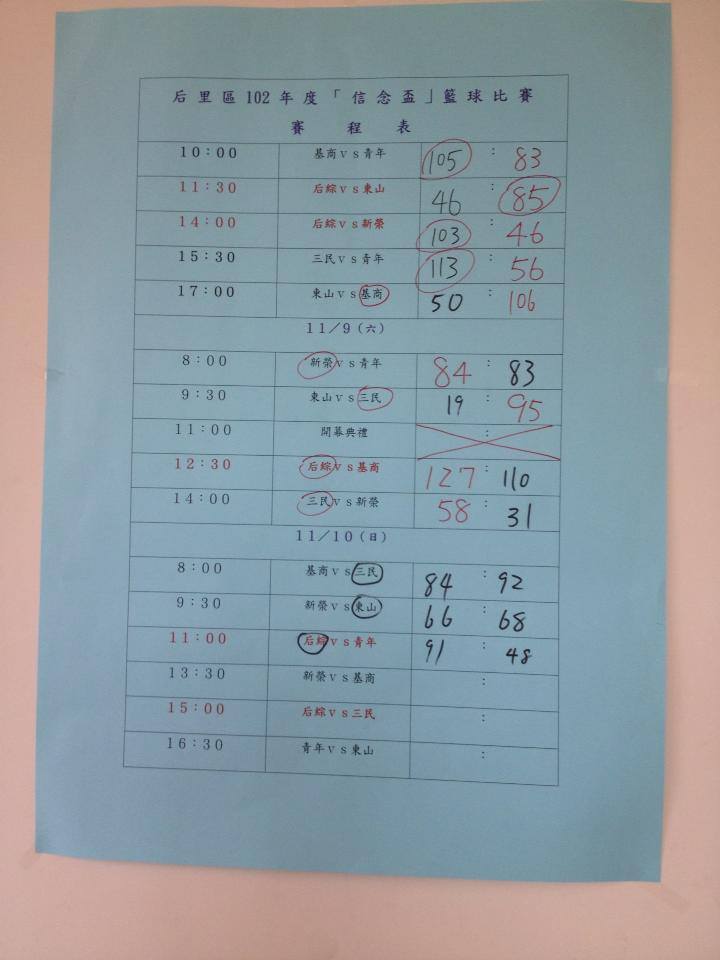 后里區102年度「信念盃」籃球比賽
賽程表
10：00 基商ＶＳ青年 105：83
11：30 后綜ＶＳ東山 46：85
14：00 后綜ＶＳ新榮 103：46
15：30 三民ＶＳ青年 113：56
17：00 東山ＶＳ基商 50：106
11／9（六）
8：00 新榮ＶＳ青年 84：83
9：30 東山ＶＳ三民 19：95
11：00 開幕典禮 ：
12：30 后綜ＶＳ基商 127：110
14：00 三民ＶＳ新榮 58：31
11／10（日）
8：00 基商ＶＳ三民 84：92
9：30 新榮ＶＳ東山 66：68
11：00 后綜ＶＳ青年 91：48
13：30 新榮ＶＳ基商 ：
15：00 后綜ＶＳ三民 ：
16：30 青年ＶＳ東山 ：